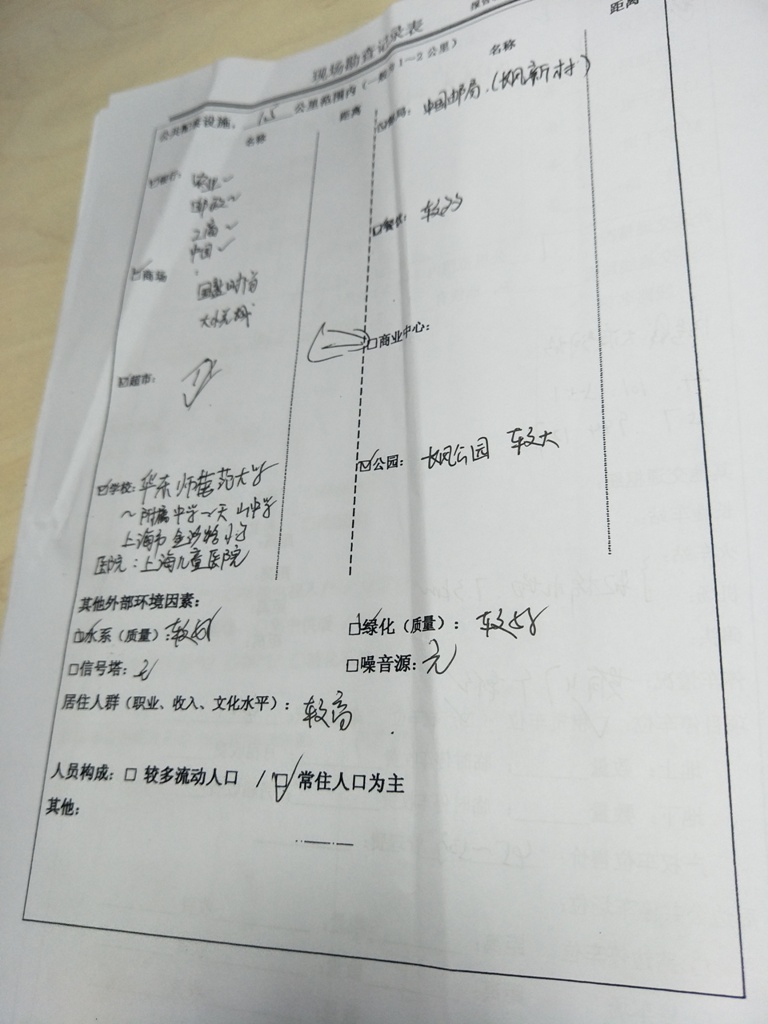 现场勘查记录表
距离
公共配套设施, 1.5 公里范围内(一般为1—2公里)
名称 距离 名称
银行:
邮政
工商
中国
邮局: 中国邮局.(长风新村)
餐饮: 较多
商场
大悦城
商业中心:
超市:
学校: 华东师范大学
~附属中学 天山中学
上海市
医院:上海儿童医院
公园: 长风公园 较大
其他外部环境因素:
水系(质量):较好
绿化(质量): 较好
信号塔:无
噪音源:无
居住人群(职业、收入、文化水平): 较高
人员构成: 较多流动人口 / 常住人口为主
其他: